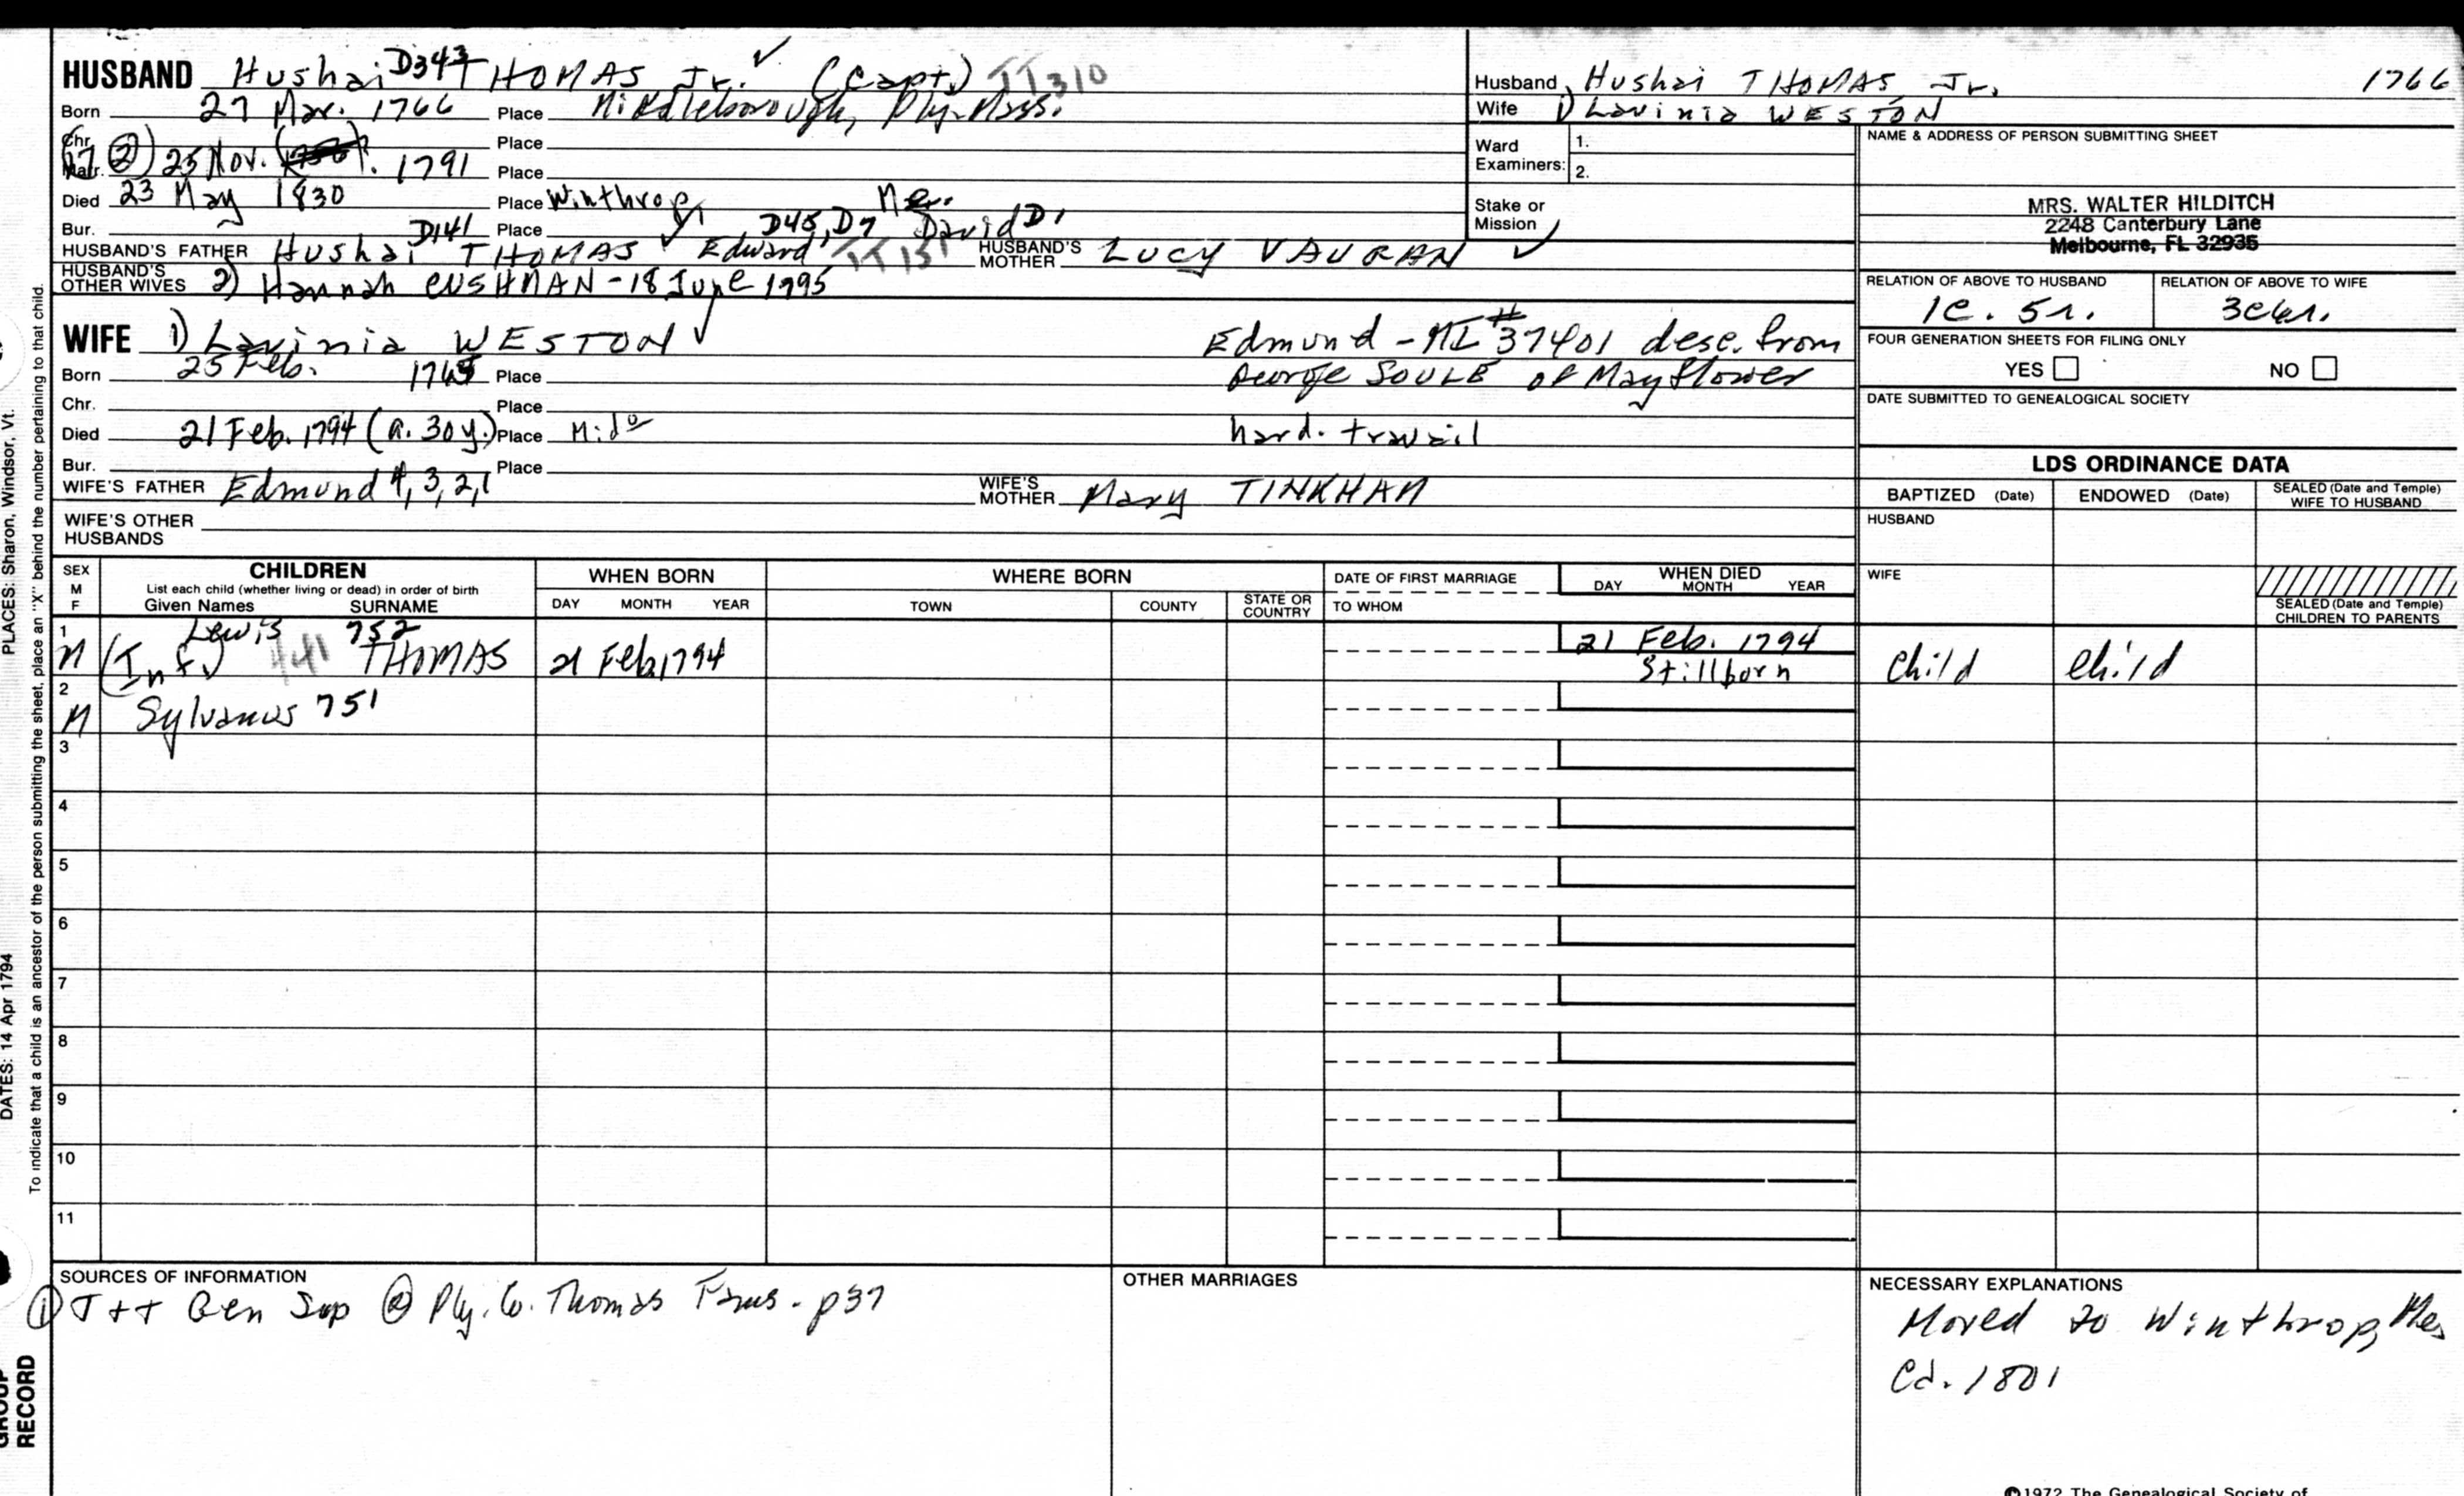 HUSBAND Hushai D343 THOMAS Jr. ✓ (Capt.) TT310
Born 27 Mar. 1766 Place Middleborough, Ply. Mass.
Chr. Place
Marr. (2) 25 Nov. 1791 Place
Died 23 May 1830 Place Winthrop, Me.
Bur. Place
HUSBAND'S FATHER Hushai D141 THOMAS ✓ Edward D45, D7 David D1 TT151 HUSBAND'S MOTHER LUCY VAUGHAN ✓
HUSBAND'S OTHER WIVES 2) Hannah CUSHMAN - 18 June 1795
WIFE 1) Lavinia WESTON ✓ Edmund - MI #37401 desc. from
Born 25 Feb. 1765 Place George SOULE of Mayflower
Chr. Place
Died 21 Feb. 1794 (a. 30 y.) Place Mido hard. travail
Bur. Place
WIFE'S FATHER Edmund 4, 3, 2, 1 WIFE'S MOTHER Mary TINKHAM
WIFE'S OTHER HUSBANDS
Husband Hushai THOMAS, Jr. 1766
Wife 1) Lavinia WESTON
Ward Examiners: 1.
2.
Stake or Mission
NAME & ADDRESS OF PERSON SUBMITTING SHEET
MRS. WALTER HILDITCH
2248 Canterbury Lane
Melbourne, FL 32935
RELATION OF ABOVE TO HUSBAND RELATION OF ABOVE TO WIFE
1c. 5r. 3c4r.
FOUR GENERATION SHEETS FOR FILING ONLY
YES NO
DATE SUBMITTED TO GENEALOGICAL SOCIETY
LDS ORDINANCE DATA
BAPTIZED (Date) ENDOWED (Date) SEALED (Date and Temple) WIFE TO HUSBAND
HUSBAND
WIFE
SEALED (Date and Temple) CHILDREN TO PARENTS
SEX M F
CHILDREN
List each child (whether living or dead) in order of birth
Given Names SURNAME
WHEN BORN
DAY MONTH YEAR
WHERE BORN
TOWN COUNTY STATE OR COUNTRY
DATE OF FIRST MARRIAGE
TO WHOM
WHEN DIED
DAY MONTH YEAR
1 M Lewis 752 (Inf) 441 THOMAS 21 Feb. 1794 21 Feb. 1794 Stillborn child child
2 M Sylvanus 751
3
4
5
6
7
8
9
10
11
SOURCES OF INFORMATION
① T++ Gen Sup ② Ply. Co. Thomas Fams - p37
OTHER MARRIAGES
NECESSARY EXPLANATIONS
Moved to Winthrop, Me
Ca. 1801
©1972 The Genealogical Society of
PLACES: Sharon, Windsor, Vt.
DATES: 14 Apr 1794
To indicate that a child is an ancestor of the person submitting the sheet, place an "X" behind the number pertaining to that child.
GROUP
RECORD